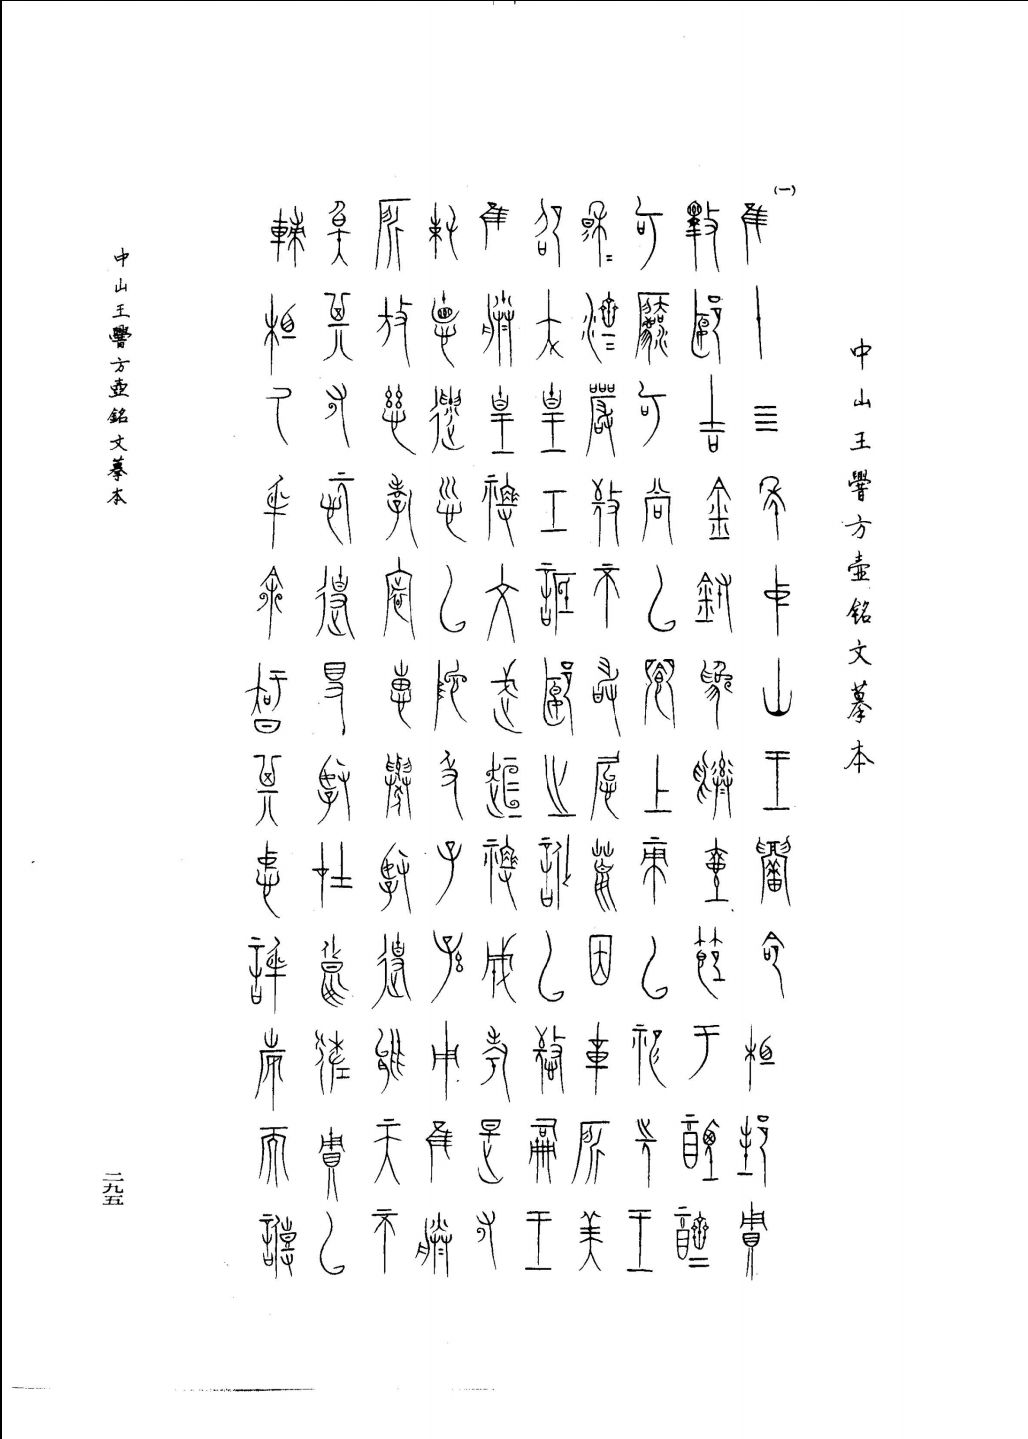 中山王䁐方壺銘文摹本
(一)
隹十四年中山王䁐命相邦賙
斁郾吉金鑄爲彝壺節于禋𨣧
可灋可尚以鄉上帝以祀先王
穆=濟=嚴敬不敢怠荒因載所美
卲大皇工詆郾之訛以憼嗣王
隹朕皇祖文武桓祖成考是又
純德遺訓以陀及子孫用隹朕
所放慈孝寰惠舉賢使能天不
斁其又忨使得賢在良佐賙以
輔相氒身余智其忠䚱也而譐
中山王䁐方壺銘文摹本
二九五